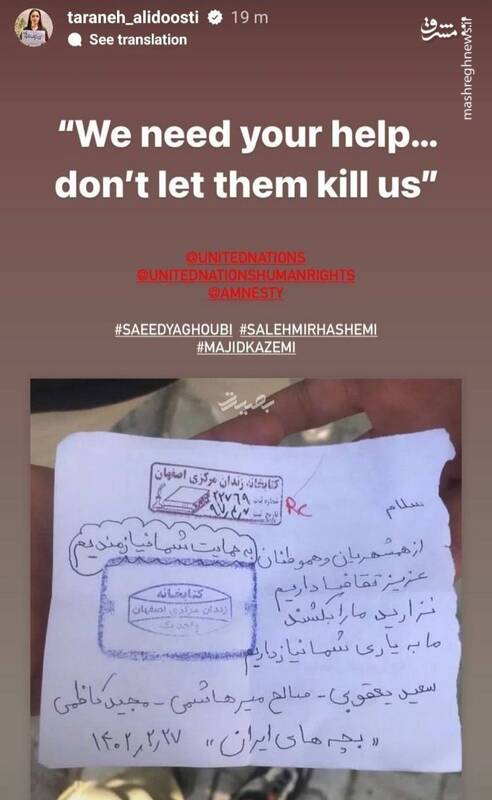 taraneh_alidoosti 19 m
See translation
مشرق
mashreghnews.ir
“We need your help...
don’t let them kill us”
@UNITEDNATIONS
@UNITEDNATIONSHUMANRIGHTS
@AMNESTY
#SAEEDYAGHOUBI #SALEHMIRHASHEMI
#MAJIDKAZEMI
کتابخانه زندان مرکزی اصفهان
شماره ثبت ۲۲۷۶۹
تاریخ ثبت ۹۷/۲/۷
RC
سلام
از همشهریان و هموطنان به حمایت شما نیازمندیم
عزیز تقاضا داریم
نزارید ما را بکشند
ما به یاری شما نیاز داریم
کتابخانه
زندان مرکزی اصفهان
سعید یعقوبی - صالح میرهاشمی - مجید کاظمی
«بچه های ایران» ۱۴۰۲,۲,۲۷